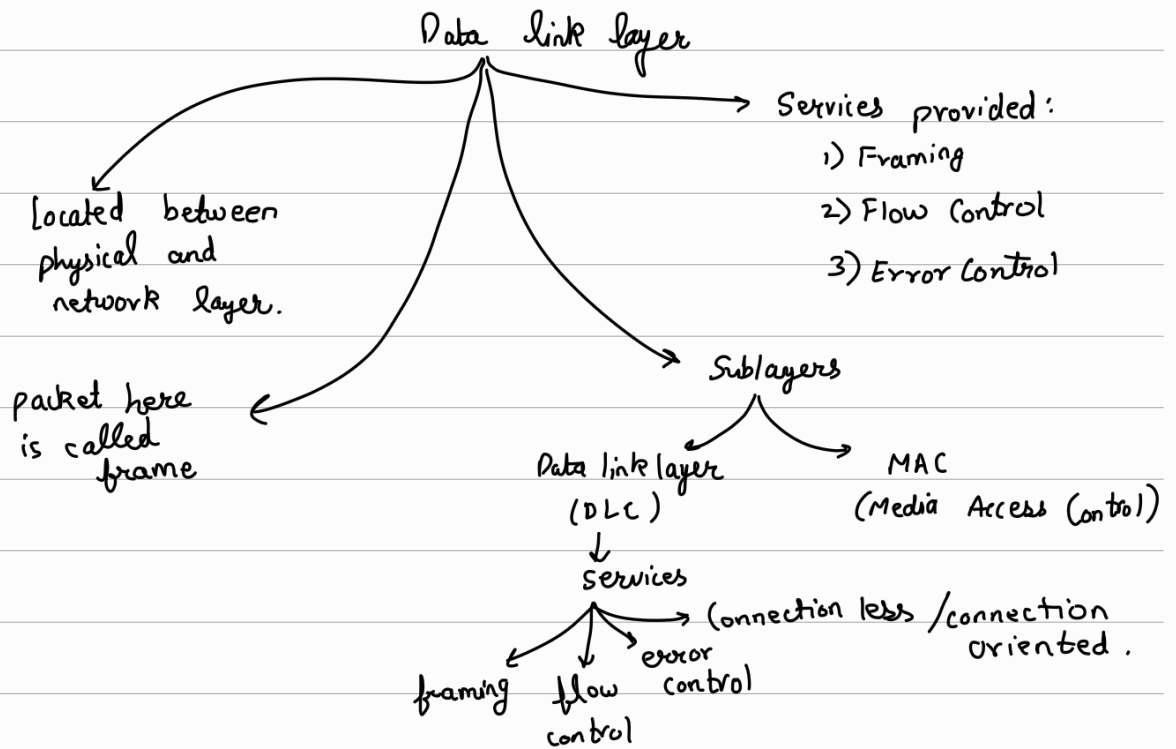 Data link layer
Services provided:
1) Framing
2) Flow Control
3) Error Control
Located between
physical and
network layer.
packet here
is called
frame
Sublayers
Data link layer
(DLC)
MAC
(Media Access Control)
services
Connection less / connection
oriented.
error
control
framing
flow
control